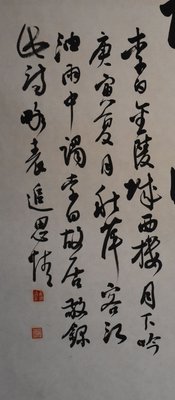 李白金陵城西楼月下吟
庚寅夏月秋萍客江
油雨中谒李白故居敬录
此诗略表追思情